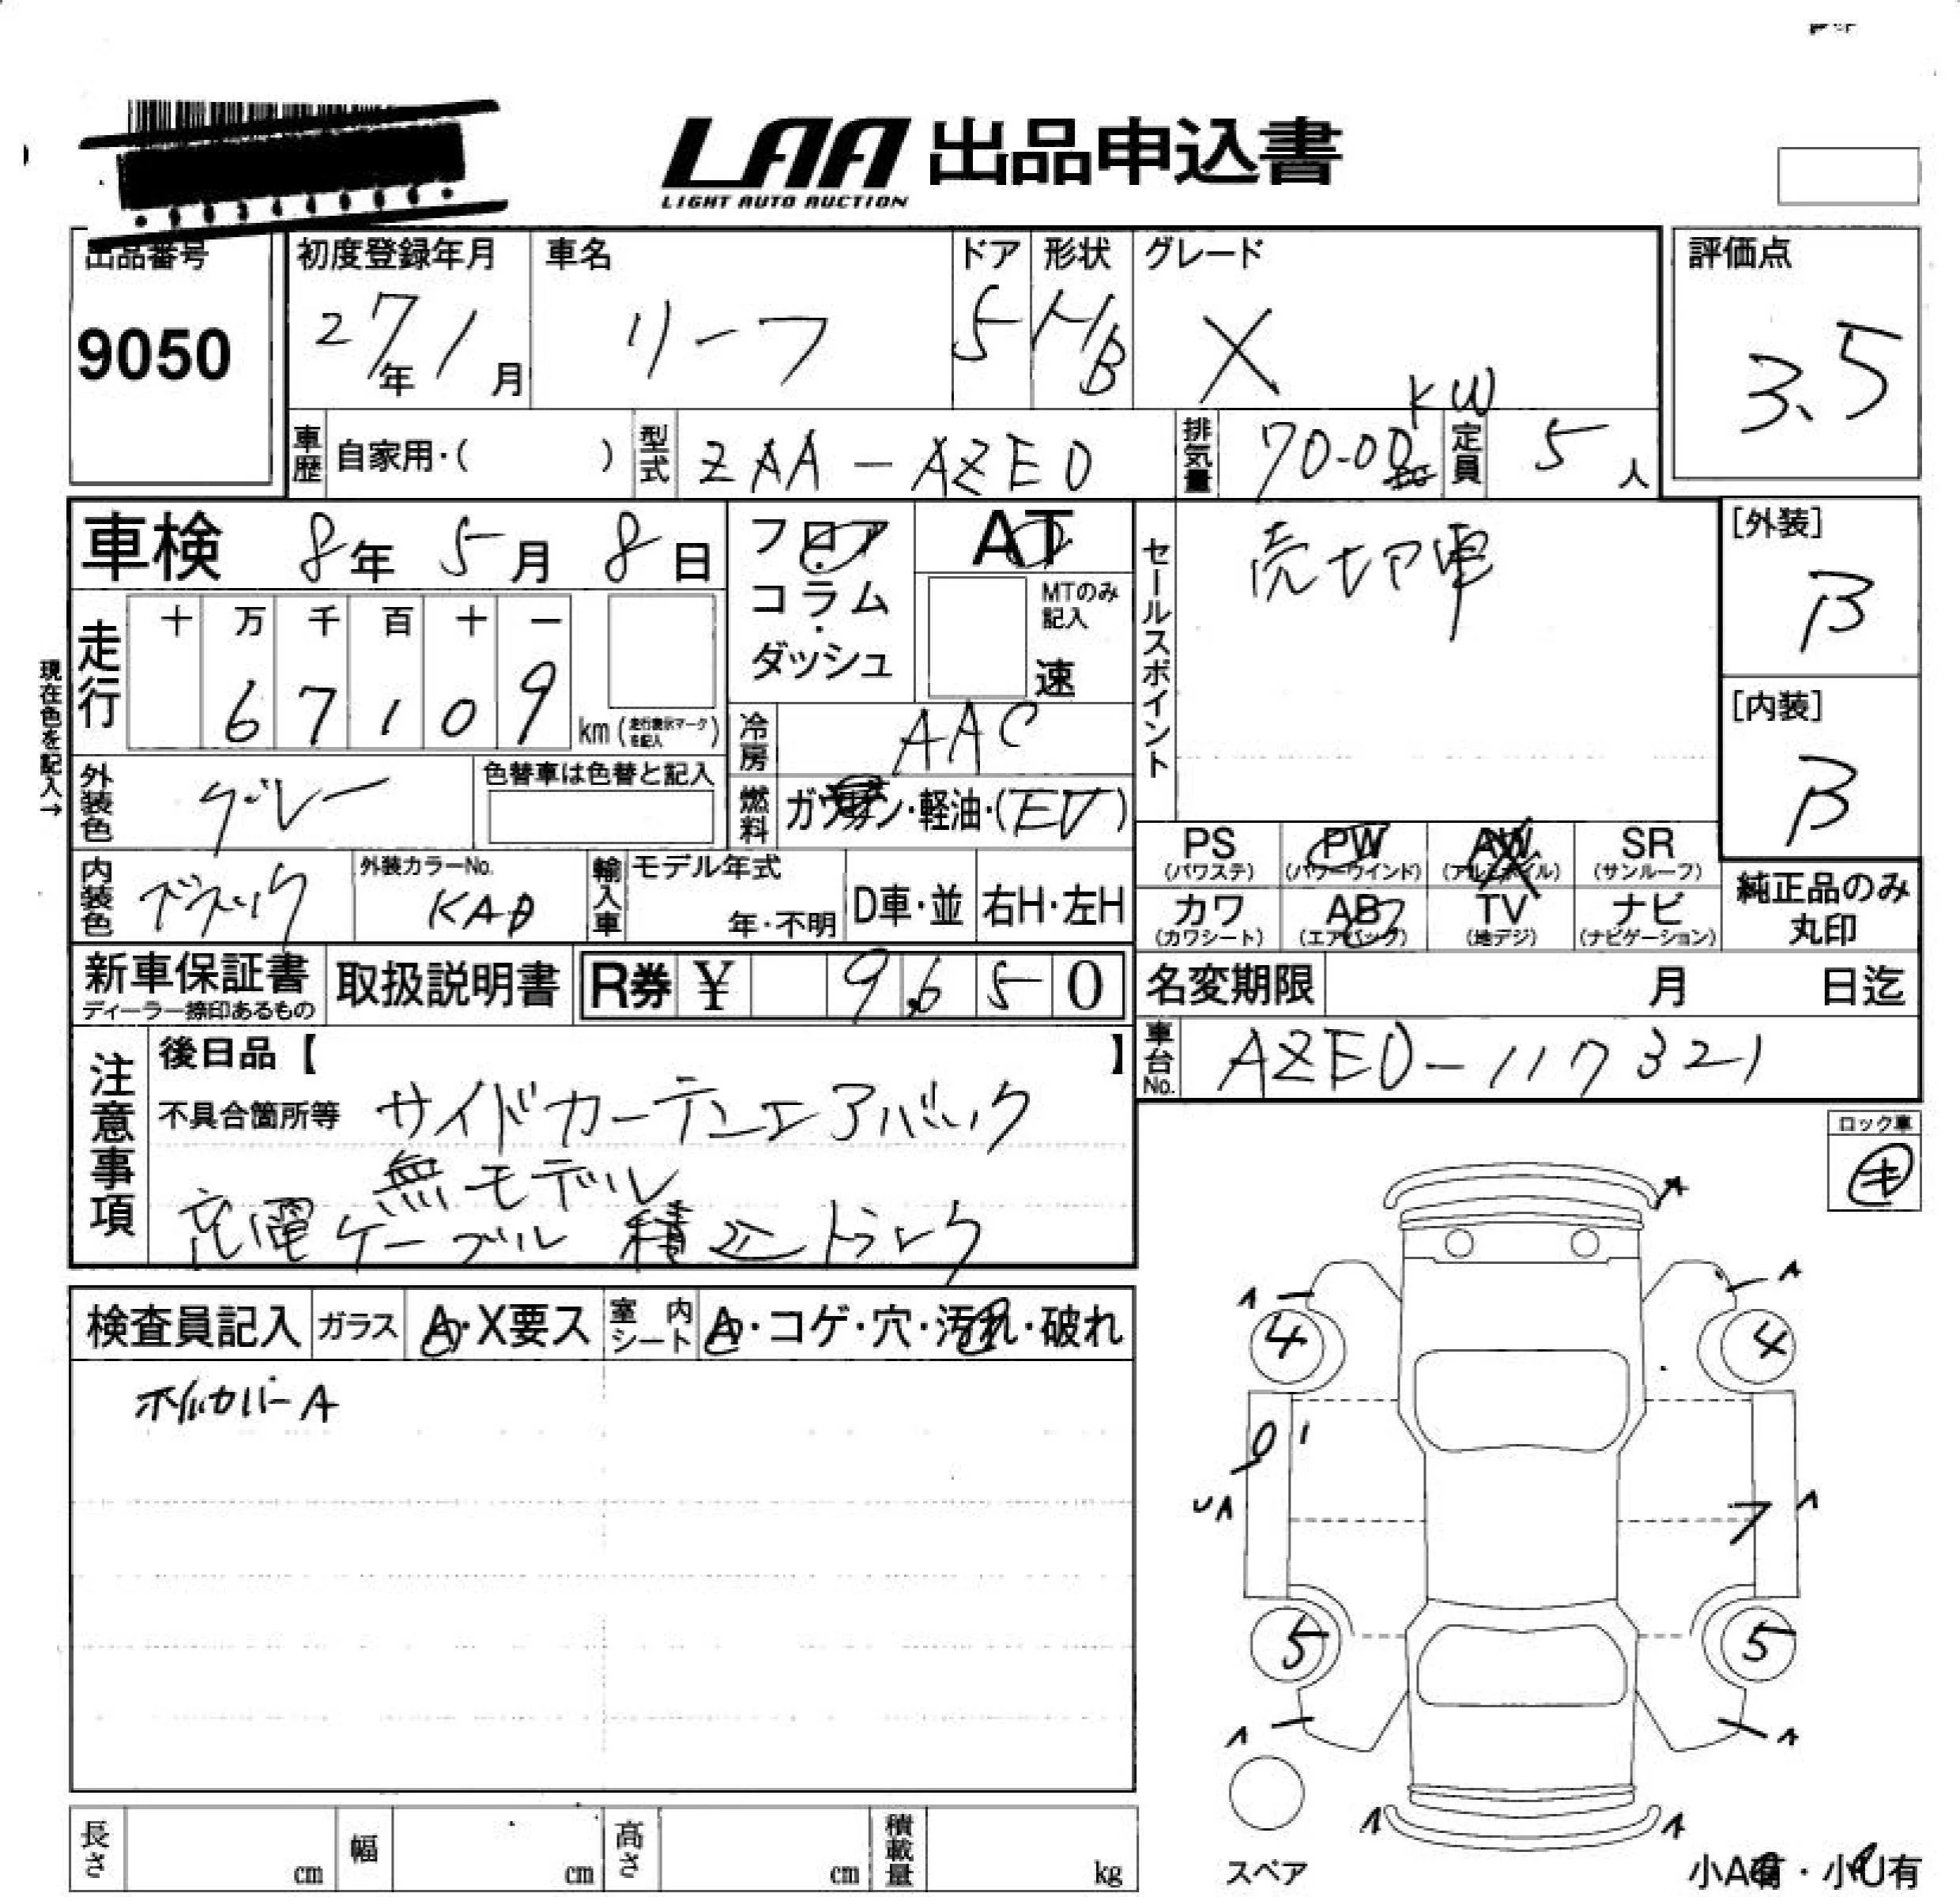 LAA 出品申込書
LIGHT AUTO AUCTION
出品番号
9050
初度登録年月
27年 1月
車名
リーフ
ドア
5
形状
H/B
グレード
X
評価点
3.5
車歴 自家用・( )
型式 ZAA-AZE0
排気量 70-00 KW
定員 5人
車検 8年 5月 8日
フロア・コラム・ダッシュ
AT
MTのみ記入
速
セールスポイント
売切車
[外装]
B
[内装]
B
現在色を記入→
走行
十 万 千 百 十 一
6 7 1 0 9
km (走行表示マークを記入)
冷房 AAC
燃料 ガソリン・軽油・(EV)
外装色 グレー
色替車は色替と記入
内装色 ブラック
外装カラーNo.
KAD
輸入車
モデル年式
年・不明
D車・並
右H・左H
PS (パワステ)
PW (パワーウインド)
AW (アルミホイル)
SR (サンルーフ)
カワ (カワシート)
AB (エアバッグ)
TV (地デジ)
ナビ (ナビゲーション)
純正品のみ丸印
新車保証書
ディーラー捺印あるもの
取扱説明書
R券 ¥ 9,650
名変期限 月 日迄
車台No. AZE0-117321
注意事項
後日品【 】
不具合箇所等 サイドカーテンエアバック
無モデル
充電ケーブル積込トランク
ロック車
キ
検査員記入
ガラス A・X要ス
室内シート A・コゲ・穴・汚れ・破れ
ホイルカバーA
A
A
A
4
4
UA
7
A
5
5
A
A
A
A
スペア
小A有・小U有
長さ cm
幅 cm
高さ cm
積載量 kg